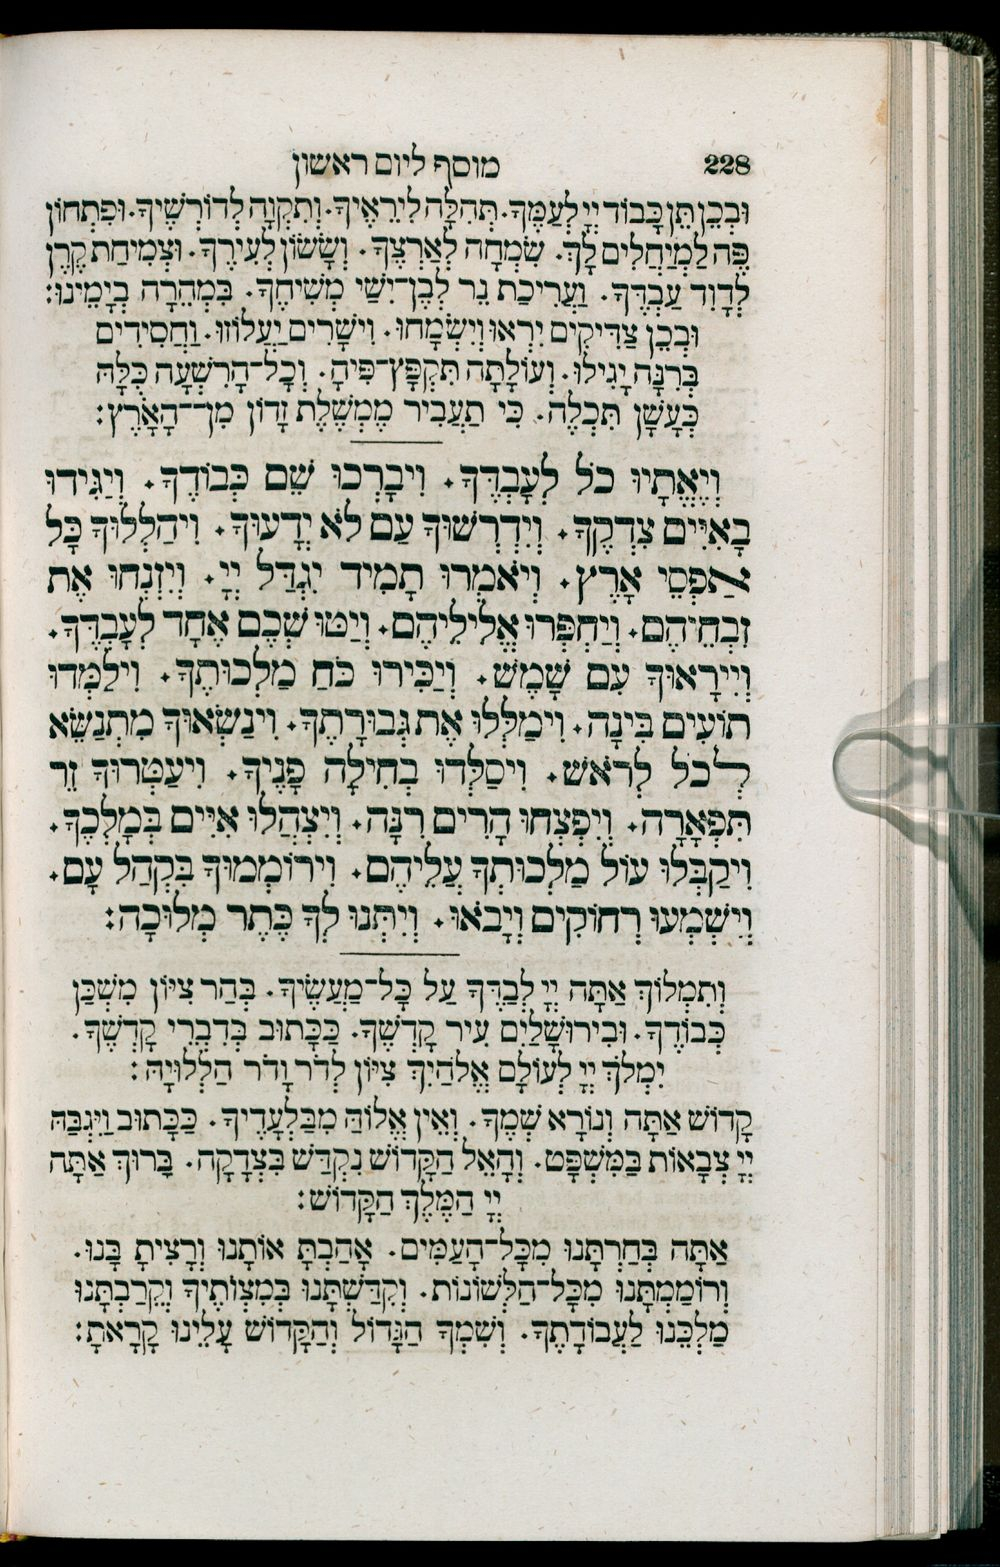 228 מוסף ליום ראשון
וּבְכֵן תֵּן כָּבוֹד יְיָ לְעַמֶּךָ. תְּהִלָּה לִירֵאֶיךָ. וְתִקְוָה לְדוֹרְשֶׁיךָ. וּפִתְחוֹן
פֶּה לַמְיַחֲלִים לָךְ. שִׂמְחָה לְאַרְצֶךָ. וְשָׂשׂוֹן לְעִירֶךָ. וּצְמִיחַת קֶרֶן
לְדָוִד עַבְדֶּךָ. וַעֲרִיכַת נֵר לְבֶן־יִשַׁי מְשִׁיחֶךָ. בִּמְהֵרָה בְיָמֵינוּ:
וּבְכֵן צַדִּיקִים יִרְאוּ וְיִשְׂמָחוּ. וִישָׁרִים יַעֲלוֹזוּ. וַחֲסִידִים
בְּרִנָּה יָגִילוּ. וְעוֹלָתָה תִּקְפָּץ־פִּיהָ. וְכָל־הָרִשְׁעָה כֻּלָּהּ
כְּעָשָׁן תִּכְלֶה. כִּי תַעֲבִיר מֶמְשֶׁלֶת זָדוֹן מִן־הָאָרֶץ:
וְיֶאֱתָיוּ כֹל לְעָבְדֶּךָ. וִיבָרְכוּ שֵׁם כְּבוֹדֶךָ. וְיַגִּידוּ
בָאִיִּים צִדְקֶךָ. וְיִדְרְשׁוּךָ עַם לֹא יְדָעוּךָ. וִיהַלְלוּךָ כָּל
אַפְסֵי אָרֶץ. וְיֹאמְרוּ תָמִיד יִגְדַּל יְיָ. וְיִזְנְחוּ אֶת
זִבְחֵיהֶם. וְיַחְפְּרוּ אֱלִילֵיהֶם. וְיַטּוּ שְׁכֶם אֶחָד לְעָבְדֶּךָ.
וְיִירָאוּךָ עִם שֶׁמֶשׁ. וְיַכִּירוּ כֹּחַ מַלְכוּתֶךָ. וִילַמְּדוּ
תוֹעִים בִּינָה. וִימַלְּלוּ אֶת גְּבוּרָתֶךָ. וִינַשְּׂאוּךָ מִתְנַשֵּׂא
לְכֹל לְרֹאשׁ. וִיסַלְּדוּ בְחִילָה פָּנֶיךָ. וִיעַטְּרוּךָ זֵר
תִּפְאָרָה. וְיִפְצְחוּ הָרִים רִנָּה. וְיִצְהֲלוּ אִיִּים בְּמָלְכֶךָ.
וִיקַבְּלוּ עוֹל מַלְכוּתְךָ עֲלֵיהֶם. וִירוֹמְמוּךָ בִּקְהַל עָם.
וְיִשְׁמְעוּ רְחוֹקִים וְיָבֹאוּ. וְיִתְּנוּ לְךָ כֶּתֶר מְלוּכָה:
וְתִמְלוֹךְ אַתָּה יְיָ לְבַדֶּךָ עַל כָּל־מַעֲשֶׂיךָ. בְּהַר צִיּוֹן מִשְׁכַּן
כְּבוֹדֶךָ. וּבִירוּשָׁלַיִם עִיר קָדְשֶׁךָ. כַּכָּתוּב בְּדִבְרֵי קָדְשֶׁךָ.
יִמְלֹךְ יְיָ לְעוֹלָם אֱלֹהַיִךְ צִיּוֹן לְדֹר וָדֹר הַלְלוּיָהּ:
קָדוֹשׁ אַתָּה וְנוֹרָא שְׁמֶךָ. וְאֵין אֱלוֹהַּ מִבַּלְעָדֶיךָ. כַּכָּתוּב וַיִּגְבַּהּ
יְיָ צְבָאוֹת בַּמִּשְׁפָּט. וְהָאֵל הַקָּדוֹשׁ נִקְדַּשׁ בִּצְדָקָה. בָּרוּךְ אַתָּה
יְיָ הַמֶּלֶךְ הַקָּדוֹשׁ:
אַתָּה בְחַרְתָּנוּ מִכָּל־הָעַמִּים. אָהַבְתָּ אוֹתָנוּ וְרָצִיתָ בָּנוּ.
וְרוֹמַמְתָּנוּ מִכָּל־הַלְּשׁוֹנוֹת. וְקִדַּשְׁתָּנוּ בְּמִצְוֹתֶיךָ וְקֵרַבְתָּנוּ
מַלְכֵּנוּ לַעֲבוֹדָתֶךָ. וְשִׁמְךָ הַגָּדוֹל וְהַקָּדוֹשׁ עָלֵינוּ קָרָאתָ: